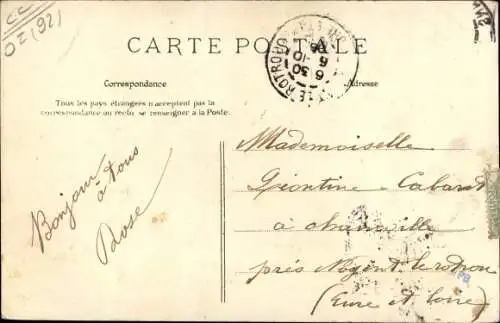 CC
02(92)
CARTE POSTALE
Correspondance
Adresse
Tous les pays étrangers n'acceptent pas la
correspondance au recto, se renseigner à la Poste.
LE ROTROU
6 30
Bonjour
à tous
Rose
Mademoiselle
Léontine Cabaret
à
près Nogent le rotrou
(Eure et Loire)